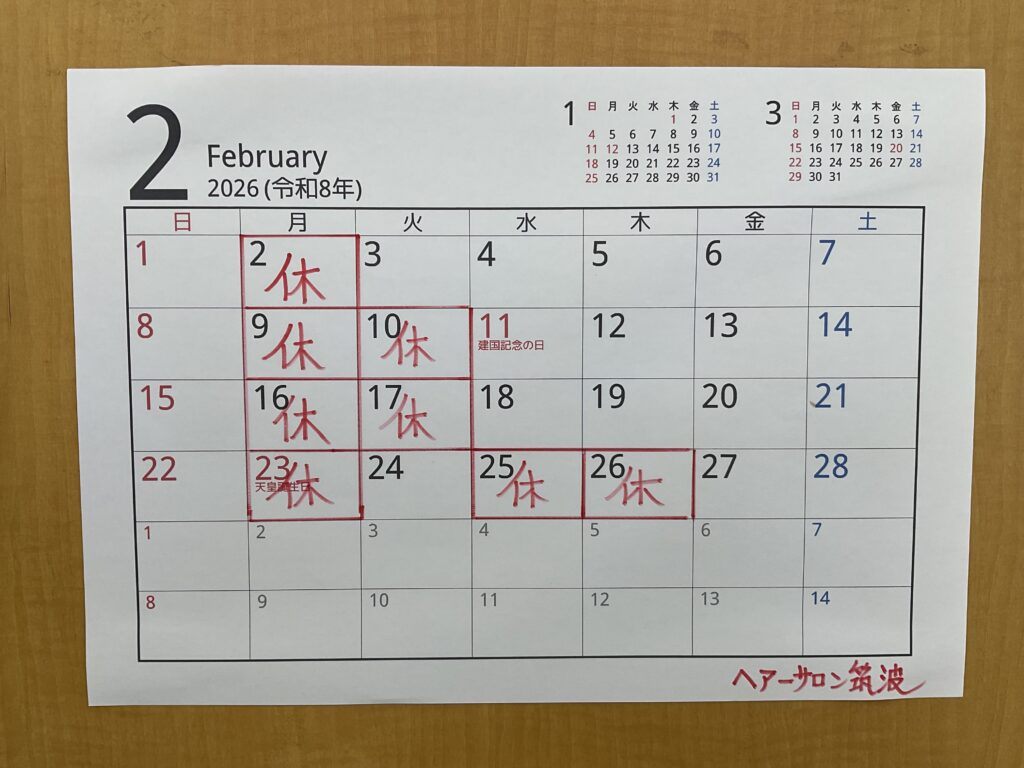 2
February
2026 (令和8年)
1
日 月 火 水 木 金 土
1 2 3
4 5 6 7 8 9 10
11 12 13 14 15 16 17
18 19 20 21 22 23 24
25 26 27 28 29 30 31
3
日 月 火 水 木 金 土
1 2 3 4 5 6 7
8 9 10 11 12 13 14
15 16 17 18 19 20 21
22 23 24 25 26 27 28
29 30 31
日 月 火 水 木 金 土
1 2 3 4 5 6 7
休
8 9 10 11 12 13 14
休 休 建国記念の日
15 16 17 18 19 20 21
休 休
22 23 24 25 26 27 28
天皇誕生日 休 休 休
1 2 3 4 5 6 7
8 9 10 11 12 13 14
ヘアーサロン筑波